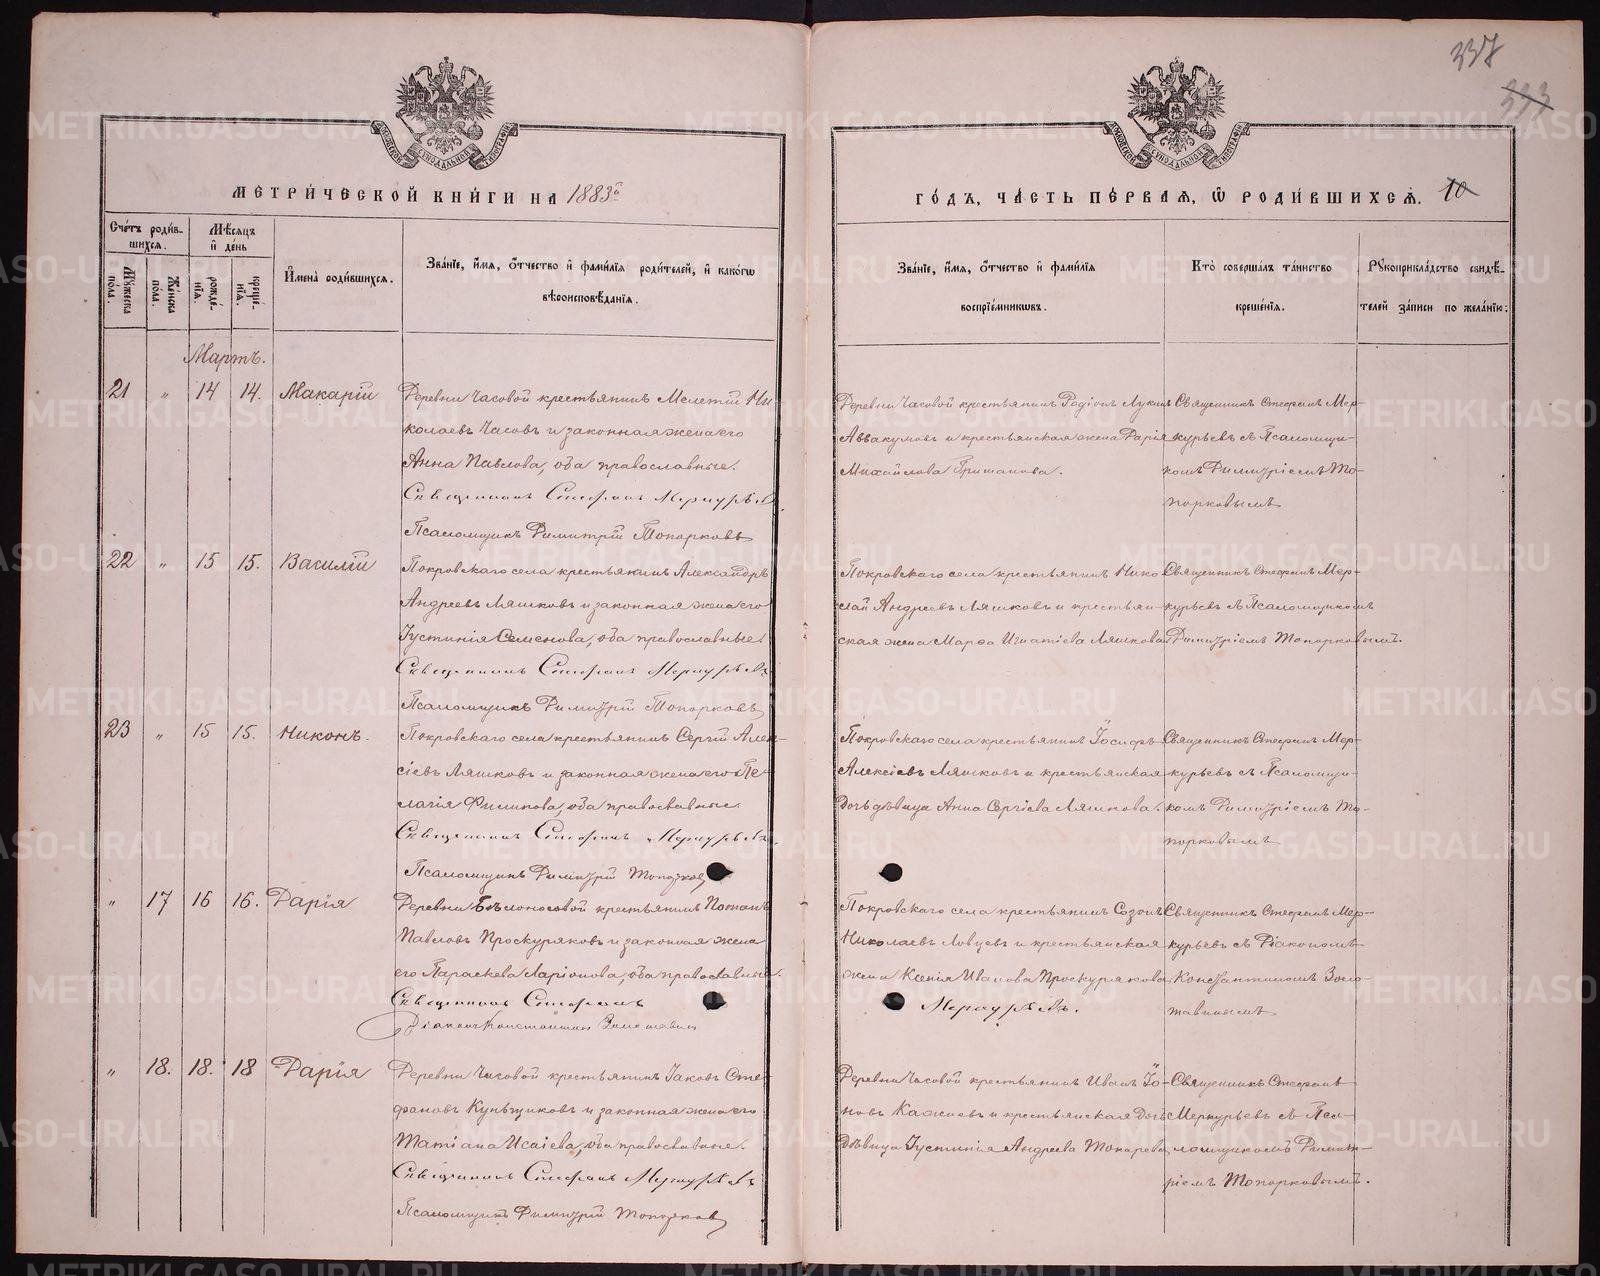 337
333
МЕТРИ́ЧЕСКОЙ КНИ́ГИ НА 1883й
ГО́ДЪ, ЧА́СТЬ ПЕ́РВАЯ, Ѡ РОДИ́ВШИХСѦ. 10
МОСКОВСКОЙ СѴНОДАЛЬНОЙ ТИПОГРАФІИ
МОСКОВСКОЙ СѴНОДАЛЬНОЙ ТИПОГРАФІИ
Сче́тъ роди́в-
шихсѧ.
Мужеска пола.
Женска пола.
Мѣ́сѧцъ
и҆ де́нь
рожде́-
нїѧ.
креще́-
нїѧ.
И҆мена̀ роди́вшихсѧ.
Зва́нїе, и҆́мѧ, ѻ҆́тчество и҆ фами́лїѧ роди́телей, и҆ како́гѡ
вѣроисповѣ́данїѧ.
Зва́нїе, и҆́мѧ, ѻ҆́тчество и҆ фами́лїѧ
воспрїе́мникѡвъ.
Кто̀ соверша́лъ та́инство
креще́нїѧ.
Рукоприкла́дство свидѣ́-
телей за́писи по жела́нїю:
Мартъ.
21 " 14 14. Макарій
Деревни Часовой крестьянинъ Мелетій Ни-
колаевъ Часовъ и законная жена его
Анна Павлова, оба православные.
Священникъ Стефанъ Меркурьевъ
Псаломщикъ Димитрій Топорковъ
Деревни Часовой крестьянинъ Родіонъ Лукинъ
Аввакумовъ и крестьянская жена Дарія
Михайлова Гришанова.
Священникъ Стефанъ Мер-
курьевъ съ Псаломщи-
комъ Димитріемъ То-
порковымъ
22 " 15 15. Василій
Покровскаго села крестьянинъ Александръ
Андреевъ Ляшковъ и законная жена его
Іустинія Семенова, оба православные.
Священникъ Стефанъ Меркурьевъ
Псаломщикъ Димитрій Топорковъ
Покровскаго села крестьянинъ Нико-
лай Андреевъ Ляшковъ и крестьян-
ская жена Марѳа Игнатіева Ляшкова
Священникъ Стефанъ Мер-
курьевъ съ Псаломщикомъ
Димитріемъ Топорковымъ.
23 " 15 15. Никонъ.
Покровскаго села крестьянинъ Сергій Алек-
сіевъ Ляшковъ и законная жена его Пе-
лагія Филипова, оба православные.
Священникъ Стефанъ Меркурьевъ
Псаломщикъ Димитрій Топорковъ
Покровскаго села крестьянинъ Іосифъ
Алексіевъ Ляшковъ и крестьянская
дочь дѣвица Анна Сергіева Ляшкова.
Священникъ Стефанъ Мер-
курьевъ съ Псаломщи-
комъ Димитріемъ То-
порковымъ
" 17 16 16. Дарія
Деревни Бѣлоносовой крестьянинъ Потапъ
Павловъ Проскуряковъ и законная жена
его Параскева Ларіонова, оба православные.
Священникъ Стефанъ
Меркурьевъ.
Діаконъ Константинъ Золотавинъ
Покровскаго села крестьянинъ Созонъ
Николаевъ Ловцевъ и крестьянская
жена Ксенія Иванова Проскурякова
Священникъ Стефанъ Мер-
курьевъ съ Діакономъ
Константиномъ Золо-
тавинымъ
" 18. 18. 18 Дарія
Деревни Часовой крестьянинъ Іаковъ Сте-
фановъ Куньщиковъ и законная жена его
Татіана Исаіева, оба православные.
Священникъ Стефанъ Меркурьевъ
Псаломщикъ Димитрій Топорковъ
Деревни Часовой крестьянинъ Иванъ Іо-
новъ и крестьянская дочь
дѣвица Іустинія Андреева Токарева
Священникъ Стефанъ
Меркурьевъ съ Пса-
ломщикомъ Димит-
ріемъ Топорковымъ.
METRIKI.GASO-URAL.RU